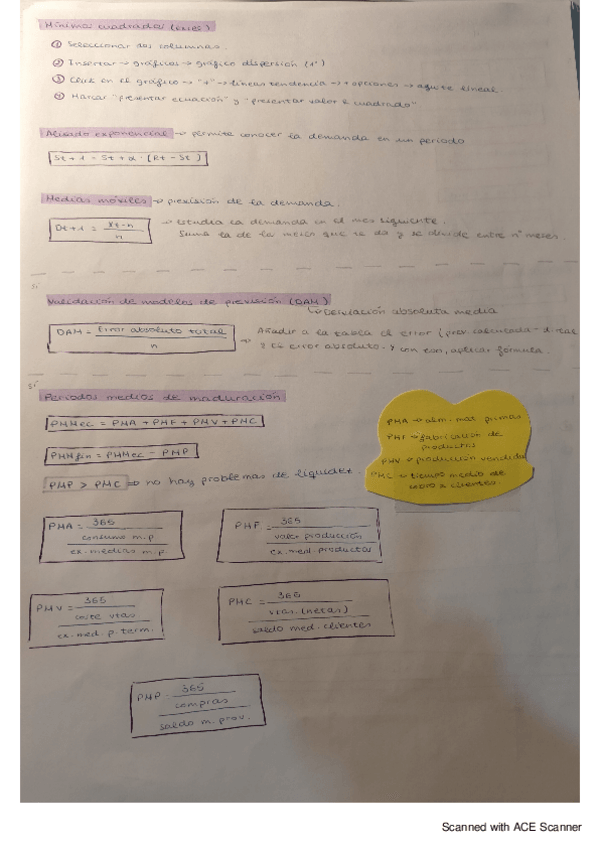 Mínimos cuadrados (excel)
① Seleccionar dos columnas.
② Insertar → gráficos → gráfico dispersión (1º)
③ Click en el gráfico → "+" → líneas tendencia → + opciones → ajuste lineal.
④ Marcar "presentar ecuación" y "presentar valor R cuadrado"
Alisado exponencial → permite conocer la demanda en un periodo
St+1 = St + α · (Rt - St)
Medias móviles → previsión de la demanda.
Dt+1 = Xt-n / n
→ Estudia la demanda en el mes siguiente.
Suma la de los meses que se da y se divide entre nº meses.
Sí
Validación de modelos de previsión (DAM)
↳ Desviación absoluta media
DAM = Error absoluto total / n
→ Añadir a la tabla el error (prev. calculada - d. real
y el error absoluto. Y con eso, aplicar fórmula.
Sí
Periodos medios de maduración
PMMec = PMA + PMF + PMV + PMC
PMMfin = PMMec - PMP
PMP > PMC ⇒ no hay problemas de liquidez.
PMA → alm. mat. primas
PMF → fabricación de
productos
PMV → producción vendida
PMC → tiempo medio de
cobro a clientes.
PMA = 365 / consumo m.p / ex. medias m.p
PMF = 365 / valor producción / ex. med. productos
PMV = 365 / coste vtas / ex. med. p. term.
PMC = 365 / vtas. (netas) / saldo med. clientes
PMP = 365 / compras / saldo m. prov.
Scanned with ACE Scanner